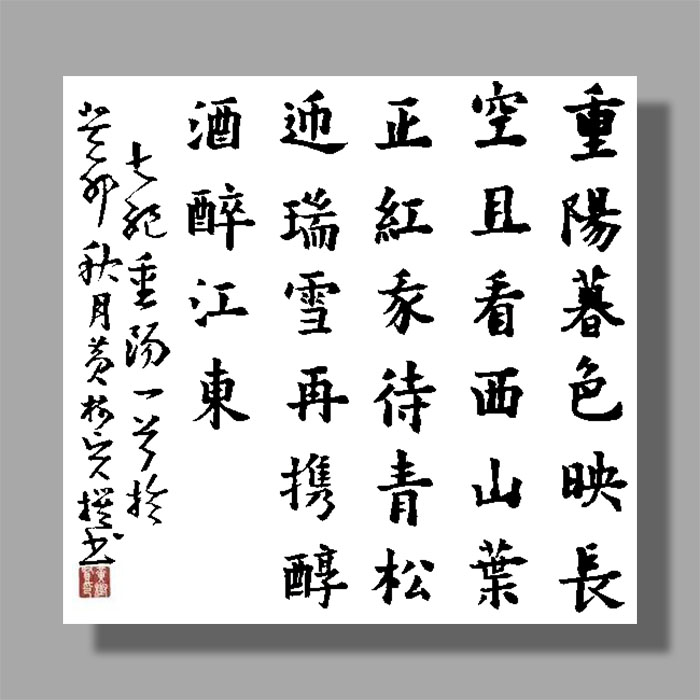 重陽暮色映長
空且看西山葉
正紅我待青松
迎瑞雪再携醇
酒醉江東
七絕重陽一首於
癸卯秋月黃樹賢撰书